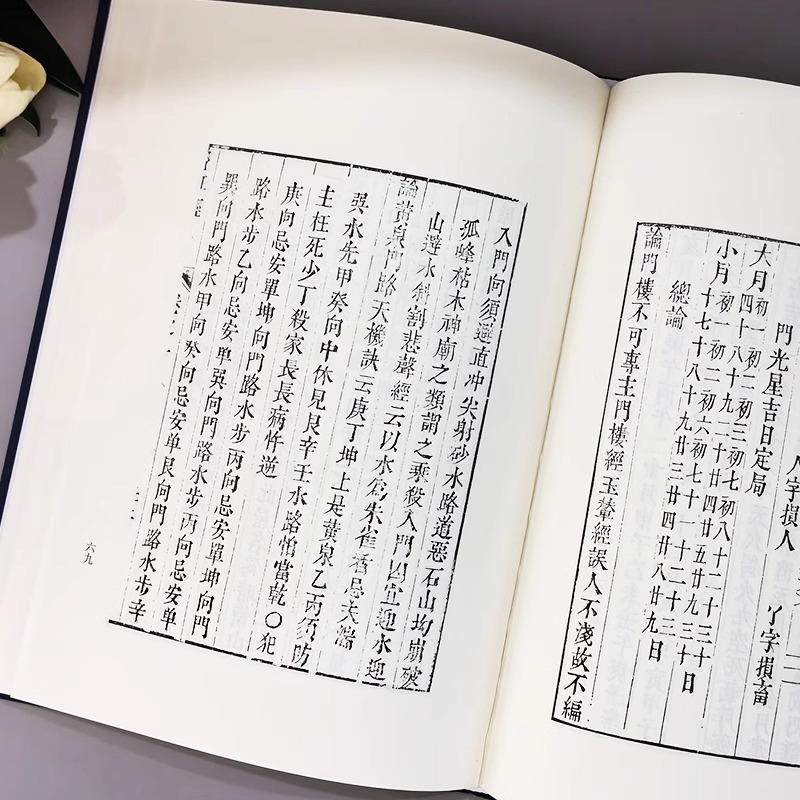 人字損人 丫字損畜
門光星吉日定局
大月初一初二初三初七初八十二十三十
四十八十九二十廿四廿五廿九三十日
小月初一初二初六初七十一十二十三
十七十八十九廿三廿四廿八廿九日
總論
論門樓不可專主門樓經玉輦經誤人不淺故不編
入門向須避直冲尖射砂水路道惡石山坳崩破
孤峰枯木神廟之類謂之乘殺入門凶宜迎水迎
山避水斜割悲聲經云以水為朱雀者忌夫湍
論黃泉門路天機訣云庚丁坤上是黃泉乙丙須防
巽水先甲癸向中休見艮辛壬水路怕當乾○犯
主枉死少丁殺家長長病忤逆
庚向忌安單坤向門路水步丙向忌安單坤向門
路水步乙向忌安单巽向門路水步丙向忌安单
巽向門路水甲向癸向忌安单艮向門路水步辛
六九